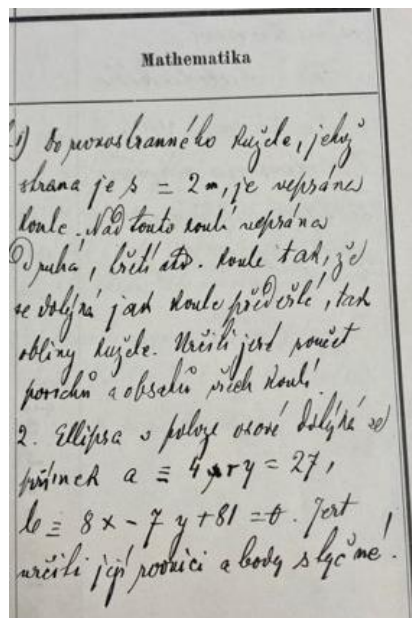 Mathematika
1) Do rovnostranného kužele, jehož
strana je s = 2m, je vepsána
koule. Nad touto koulí vepsána
druhá, třetí atd. koule tak, že
se dotýká jak koule předešlé, tak
obliny kužele. Určiti jest součet
povrchů a obsahů všech koulí.
2. Ellipsa v poloze osové dotýká se
přímek a ≡ 4x+y = 27,
b ≡ 8x - 7y + 81 = 0. Jest
určiti její rovnici a body styčné.